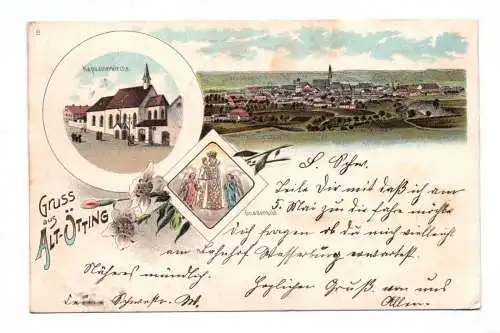 Kapuzinerkirche.
Gnadenbild.
Gruss
aus
ALT-ÖTTING
L. Schw.
Teile Dir mit daß ich am
5. Mai zu die fahre möchte
Dich fragen ob du mich vielleicht
am Bahnhof Wasserburg erwartest.
Näheres mündlich. Herzlichen Gruß von uns
Allen.
deine Schwester. M.